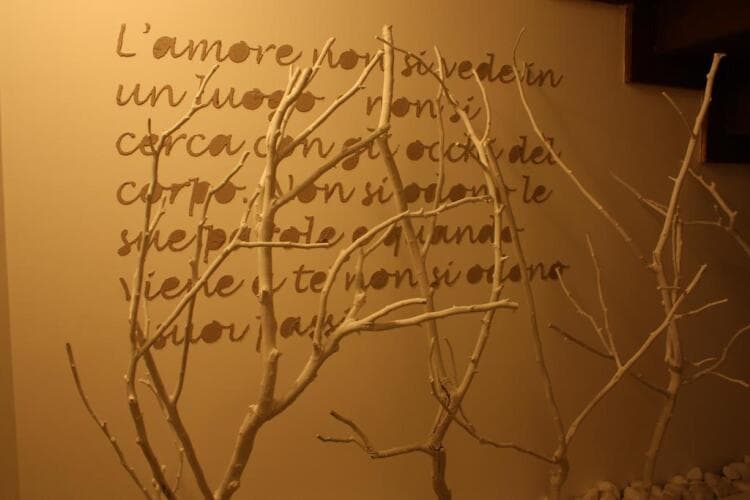 L'amore non si vede in
un luogo non si
cerca con gli occhi del
corpo. Non si odono le
sue parole e quando
viene a te non si odono
i suoi passi